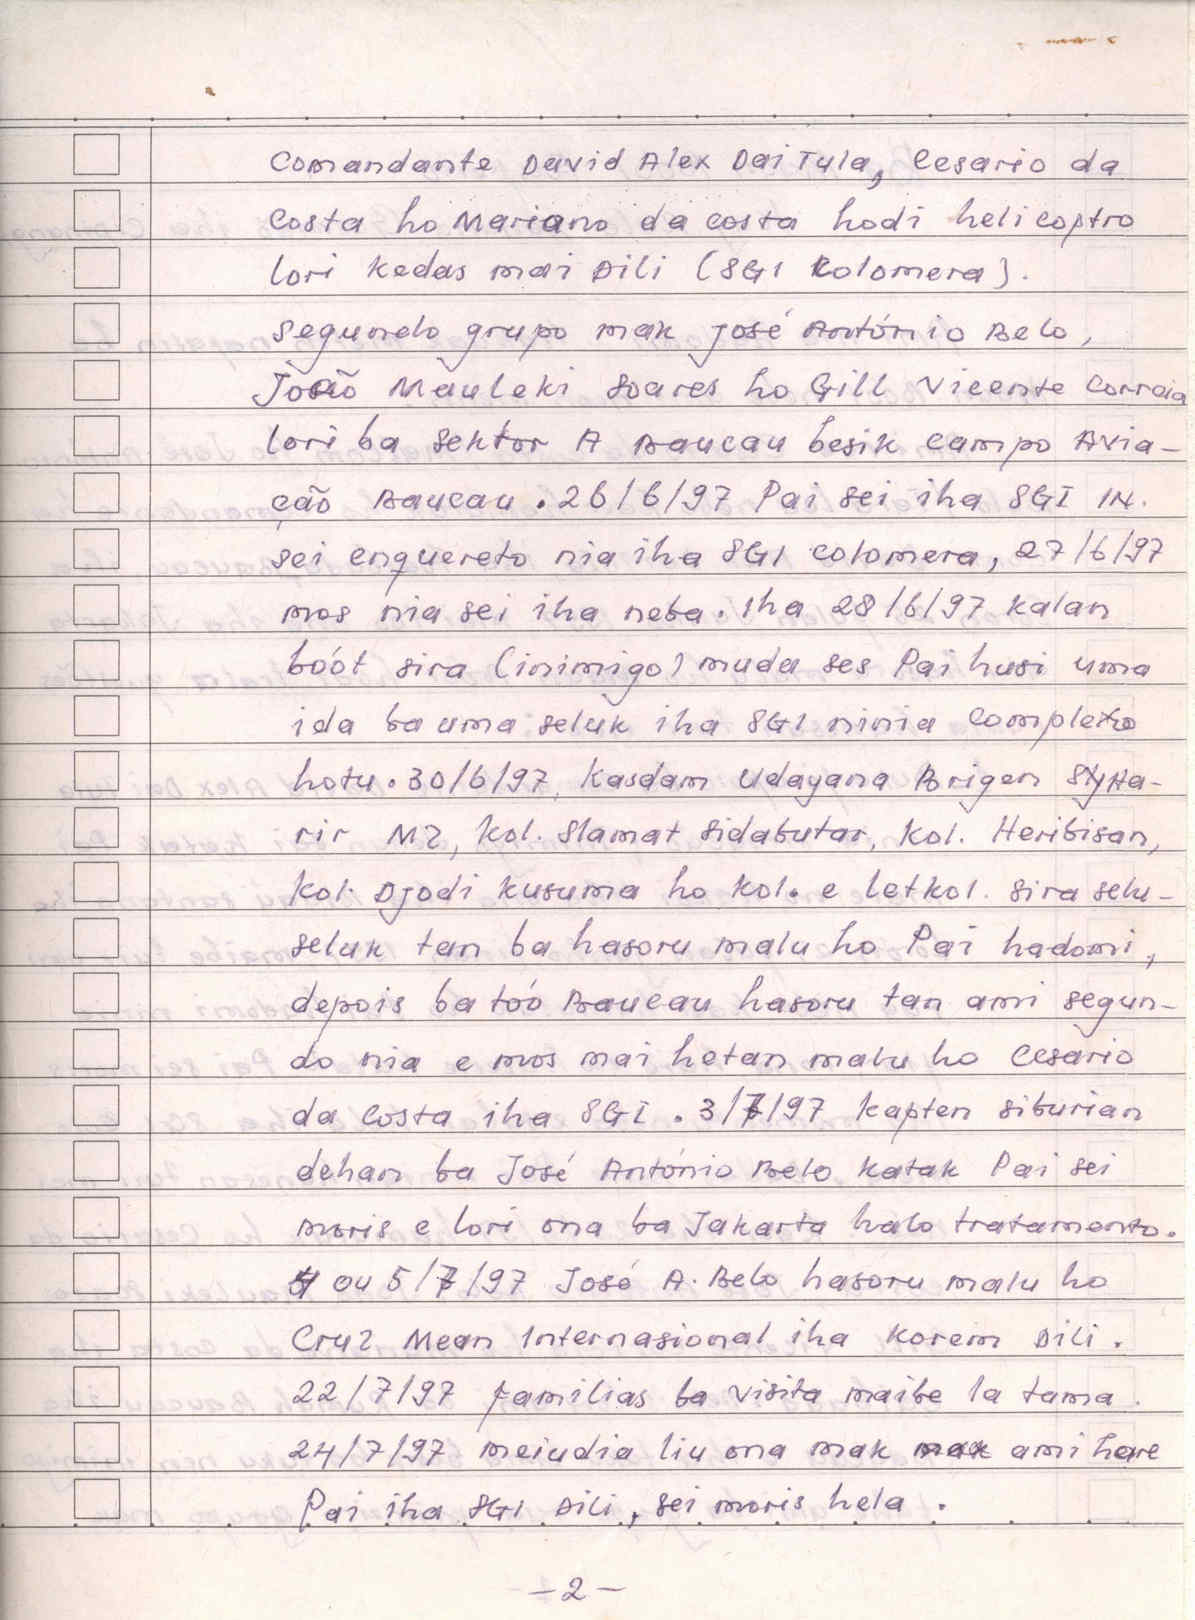 Comandante David Alex Dai Tula, Cesario da
Costa ho Mariano da costa hodi helicoptro
lori kedas mai Dili (SGI Colomera).
Segundo grupo mak José António Belo,
João Mauleki Soares ho Gill Vicente Correia
lori ba sektor A Baucau besik campo Avia-
ção Baucau. 26/6/97 Pai sei iha SGI IN.
sei enquereto nia iha SGI colomera, 27/6/97
mos nia sei iha neba. Iha 28/6/97 kalan
boót sira (inimigo) muda ses Pai husi uma
ida ba uma seluk iha SGI ninia complexo
hotu. 30/6/97, Kasdam Udayana Brigen Syha-
rir MZ, Kol. Slamat Sidabutar, Kol. Heribisan,
Kol. Djodi Kusuma ho Kol. e letkol. sira selu-
seluk tan ba hasoru malu ho Pai hadomi,
depois ba toó Baucau hasoru tan ami segun-
do nia e mos mai hetan malu ho Cesario
da Costa iha SGI. 3/7/97 kapten siburian
dehan ba José António Belo, katak Pai sei
moris e lori ona ba Jakarta halo tratamento.
4 ou 5/7/97 José A. Belo hasoru malu ho
Cruz Mean Internasional iha Korem Dili.
22/7/97 familias ba visita maibe la tama.
24/7/97 meiudia liu ona mak ami hare
Pai iha SGI Dili, sei moris hela.
-2-